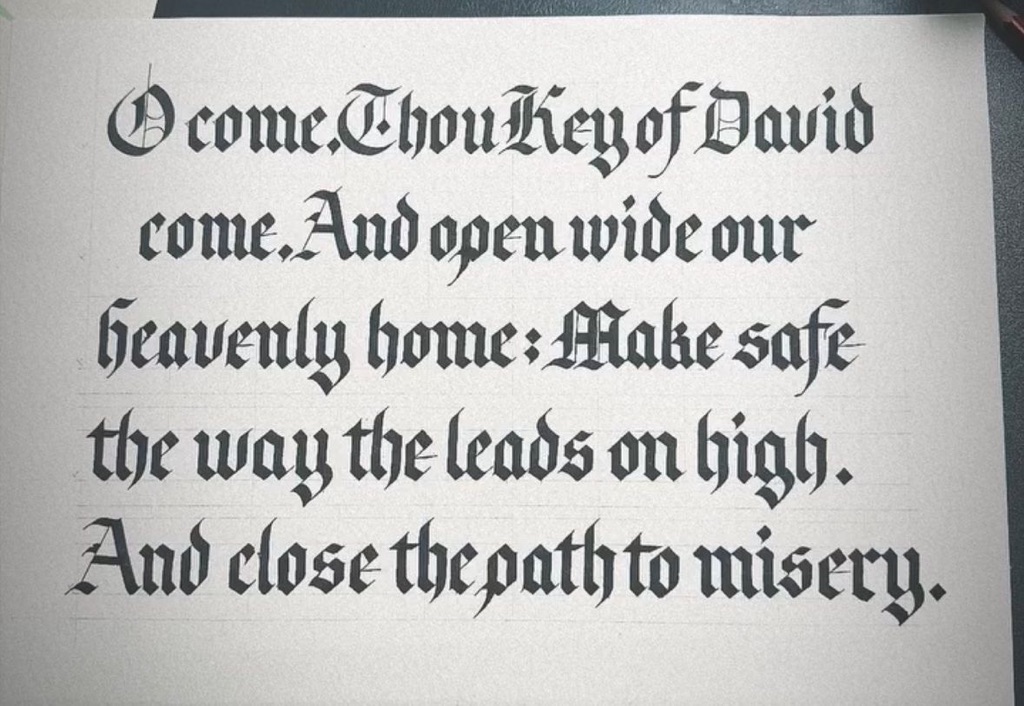 O come, Thou Key of David
come, And open wide our
heavenly home: Make safe
the way the leads on high.
And close the path to misery.